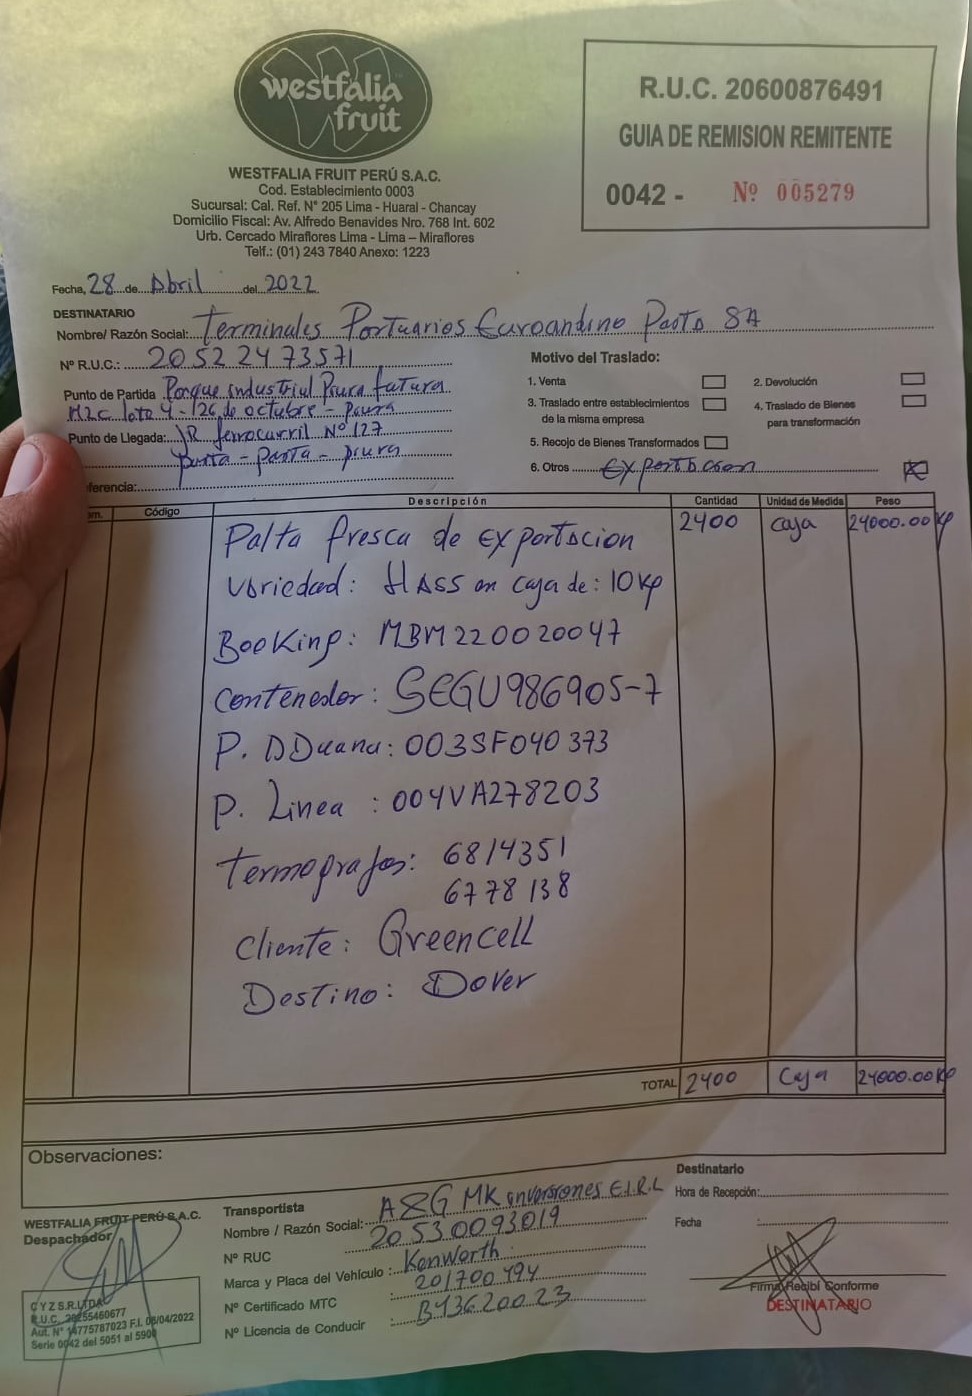 westfalia
fruit
WESTFALIA FRUIT PERÚ S.A.C.
Cod. Establecimiento 0003
Sucursal: Cal. Ref. N° 205 Lima - Huaral - Chancay
Domicilio Fiscal: Av. Alfredo Benavides Nro. 768 Int. 602
Urb. Cercado Miraflores Lima - Lima – Miraflores
Telf.: (01) 243 7840 Anexo: 1223
R.U.C. 20600876491
GUIA DE REMISION REMITENTE
0042 - Nº 005279
Fecha, 28 de Abril del 2022
DESTINATARIO
Nombre/ Razón Social: Terminales Portuarios Euroandino Paita SA
Nº R.U.C.: 20522473571
Punto de Partida Parque industrial Piura futura
Mzc lote 4 - 26 de octubre - piura
Punto de Llegada: JR ferrocarril Nº 127
paita - paita - piura
ferencia:
Motivo del Traslado:
1. Venta
2. Devolución
3. Traslado entre establecimientos
de la misma empresa
4. Traslado de Bienes
para transformación
5. Recojo de Bienes Transformados
6. Otros Exportacion X
m. Código Descripción Cantidad Unidad de Medida Peso
Palta fresca de exportacion 2400 Caja 24000.00 Kg
Variedad: HASS en caja de: 10Kg
Booking: MBM220020047
Contenedor: SEGU986905-7
P. ADuana: 003SF040373
P. Linea : 004VA278203
Termografos: 6814351
6778138
Cliente: Greencell
Destino: Dover
TOTAL 2400 Caja 24000.00 Kg
Observaciones:
WESTFALIA FRUIT PERÚ S.A.C.
Despachador
C Y Z S.R.LTDA
R.U.C. 20255460677
Aut. N° 14775787023 F.I. 08/04/2022
Serie 0042 del 5051 al 5900
Transportista
Nombre / Razón Social: A&G MK inversiones E.I.R.L
Nº RUC 20530093019
Marca y Placa del Vehículo : Kenworth
Nº Certificado MTC : 201700494
Nº Licencia de Conducir : B43620023
Destinatario
Hora de Recepción:
Fecha :
Firma Recibí Conforme
DESTINATARIO